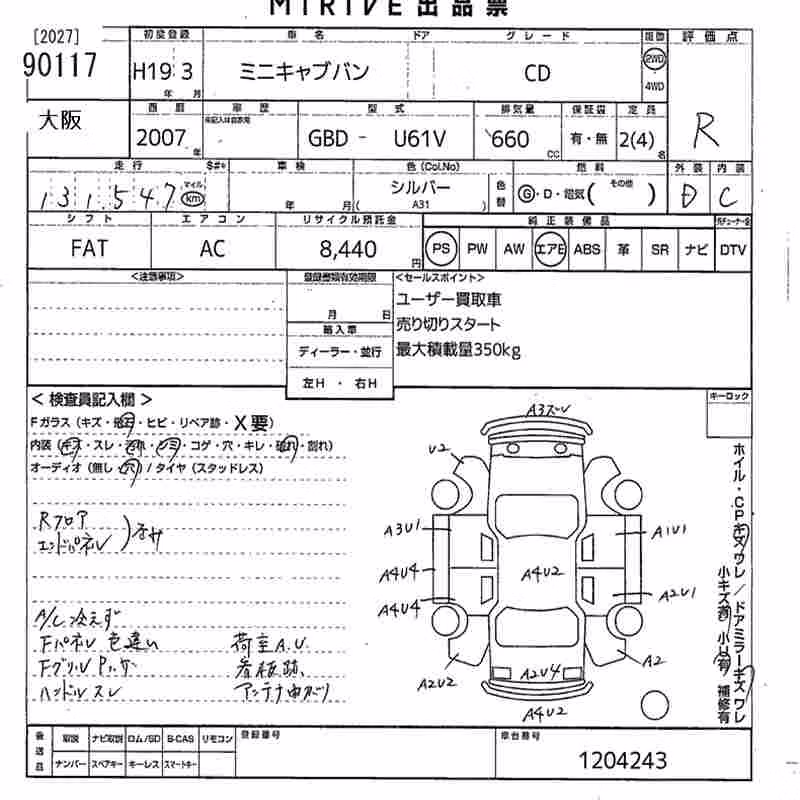 MIRIVE 出品票
[2027] 初度登録 車名 ドア グレード 駆動 評価点
90117 H19 3 ミニキャブバン CD 2WD 4WD R
年 月
大阪 西暦 車歴 型式 排気量 保証書 定員
2007 年 GBD - U61V 660 CC 有・無 2(4) 名
走行 S#* 車検 色(Col.No) 燃料 外装 内装
131,547 マイル km 年 月 シルバー ( A31 ) 色替 G・D・電気( その他 ) D C
シフト エアコン リサイクル預託金 純正装備品
FAT AC 8,440 円 PS PW AW エアB ABS 革 SR ナビ DTV
<注意事項> 登録書類有効期限 <セールスポイント>
月 日
ユーザー買取車
売り切りスタート
最大積載量350kg
輸入車
ディーラー・並行
左H ・ 右H
< 検査員記入欄 > キーロック
Fガラス(キズ・飛石・ヒビ・リペア跡・X要)
内装(キズ・スレ・汚れ・シミ・コゲ・穴・キレ・破れ・割れ)
オーディオ(無し・穴)/タイヤ(スタッドレス)
Rフロア
エンドパネル
A/C 冷えず
Fパネル色違い 荷室A.U.
看板跡
ハンドルスレ アンテナ曲がり
A3ズレ
U2
A3U1 A1U1
A4U4 A4U2
A4U4 A2U1
A2U2 A2U4 A2
A4U2
ホイル・CPキズワレ/ドアミラーキズワレ
小キズ有・小U有・補修有
後送品 取説 ナビ取説 ロム/SD B-CAS リモコン 登録番号 車台番号
ナンバー スペアキー キーレス スマートキー 1204243